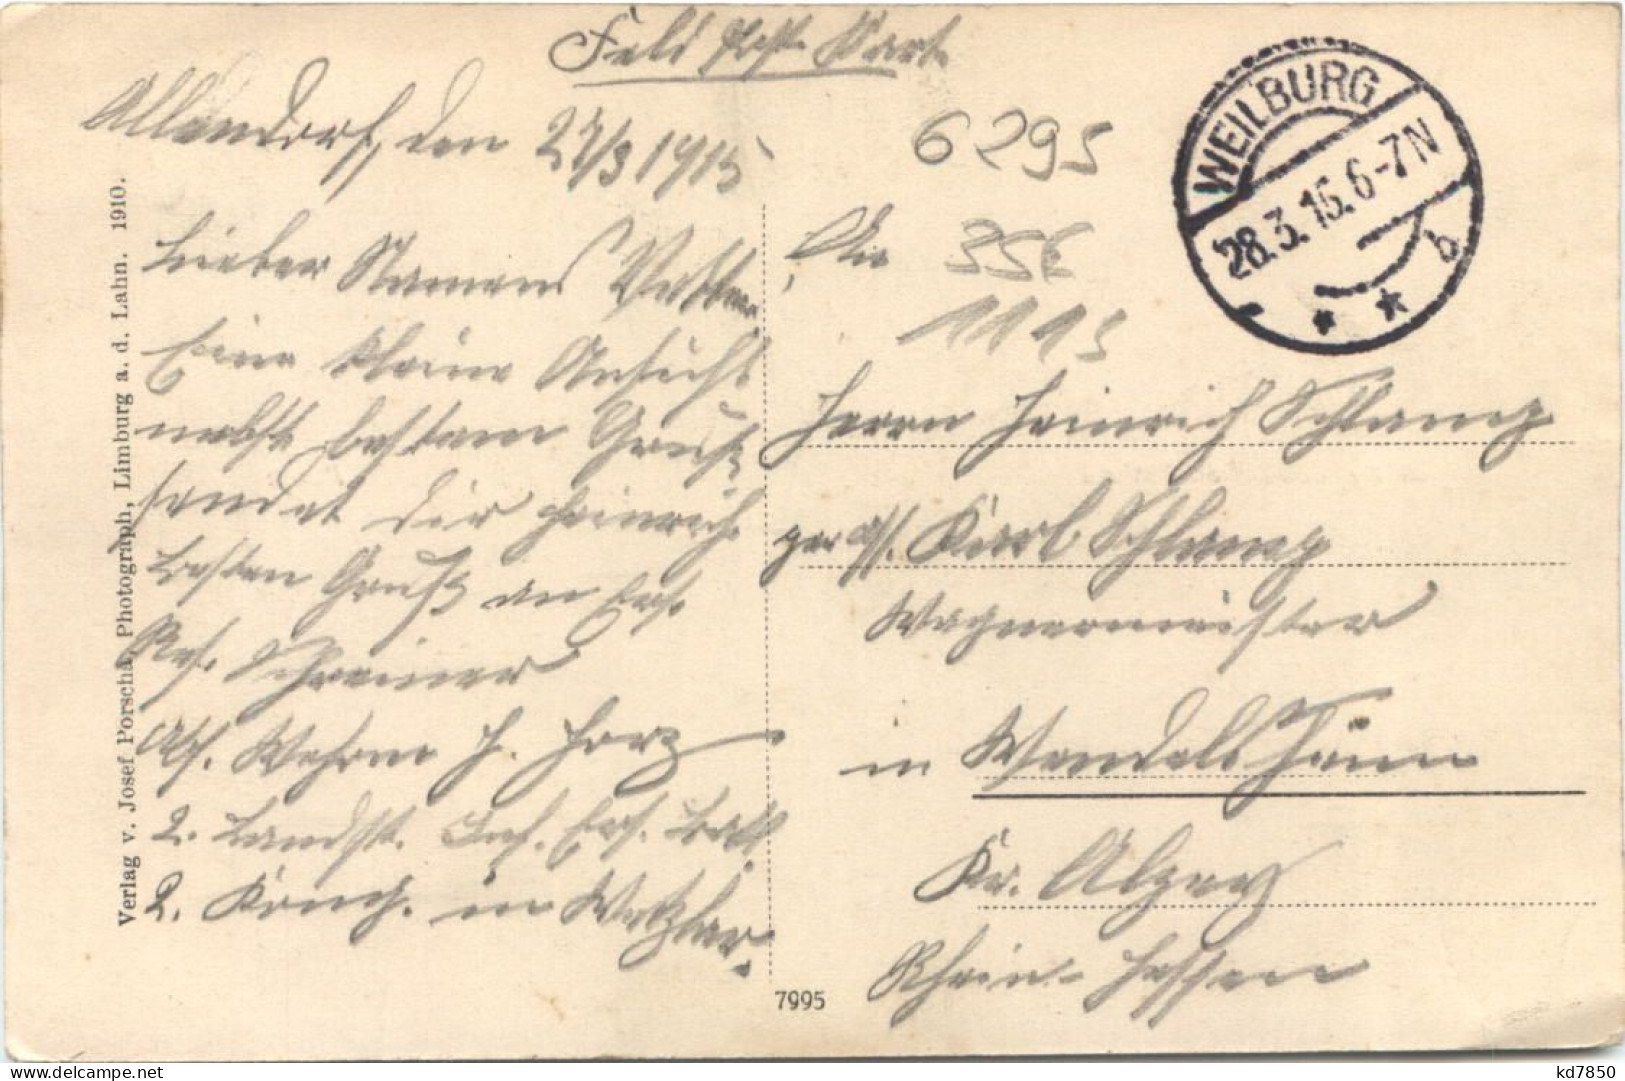 Feld Post Karte
Allendorf, den 27/3 1915
Lieber Namens Vetter
Eine kleine Ansicht
nebst bestem Gruß
sendet dir Heinrich.
Besten Gruß an Ers.
Res. Schreiner
Abs. Wehrm H. Horz
2. Landst. Inf. Ers. Batl.
2. Komp. in Wetzlar.
Verlag v. Josef Porscha, Photograph, Limburg a. d. Lahn. 1910.
6295
356
1113
WEILBURG
28.3.15.6-7N
b
Herrn Heinrich Schlamp
per Ads. Karl Schlamp
Wagnermeister
in Wendelsheim
Kr. Alzey
Rhein-Hessen
7995
delcampe.net
kd7850